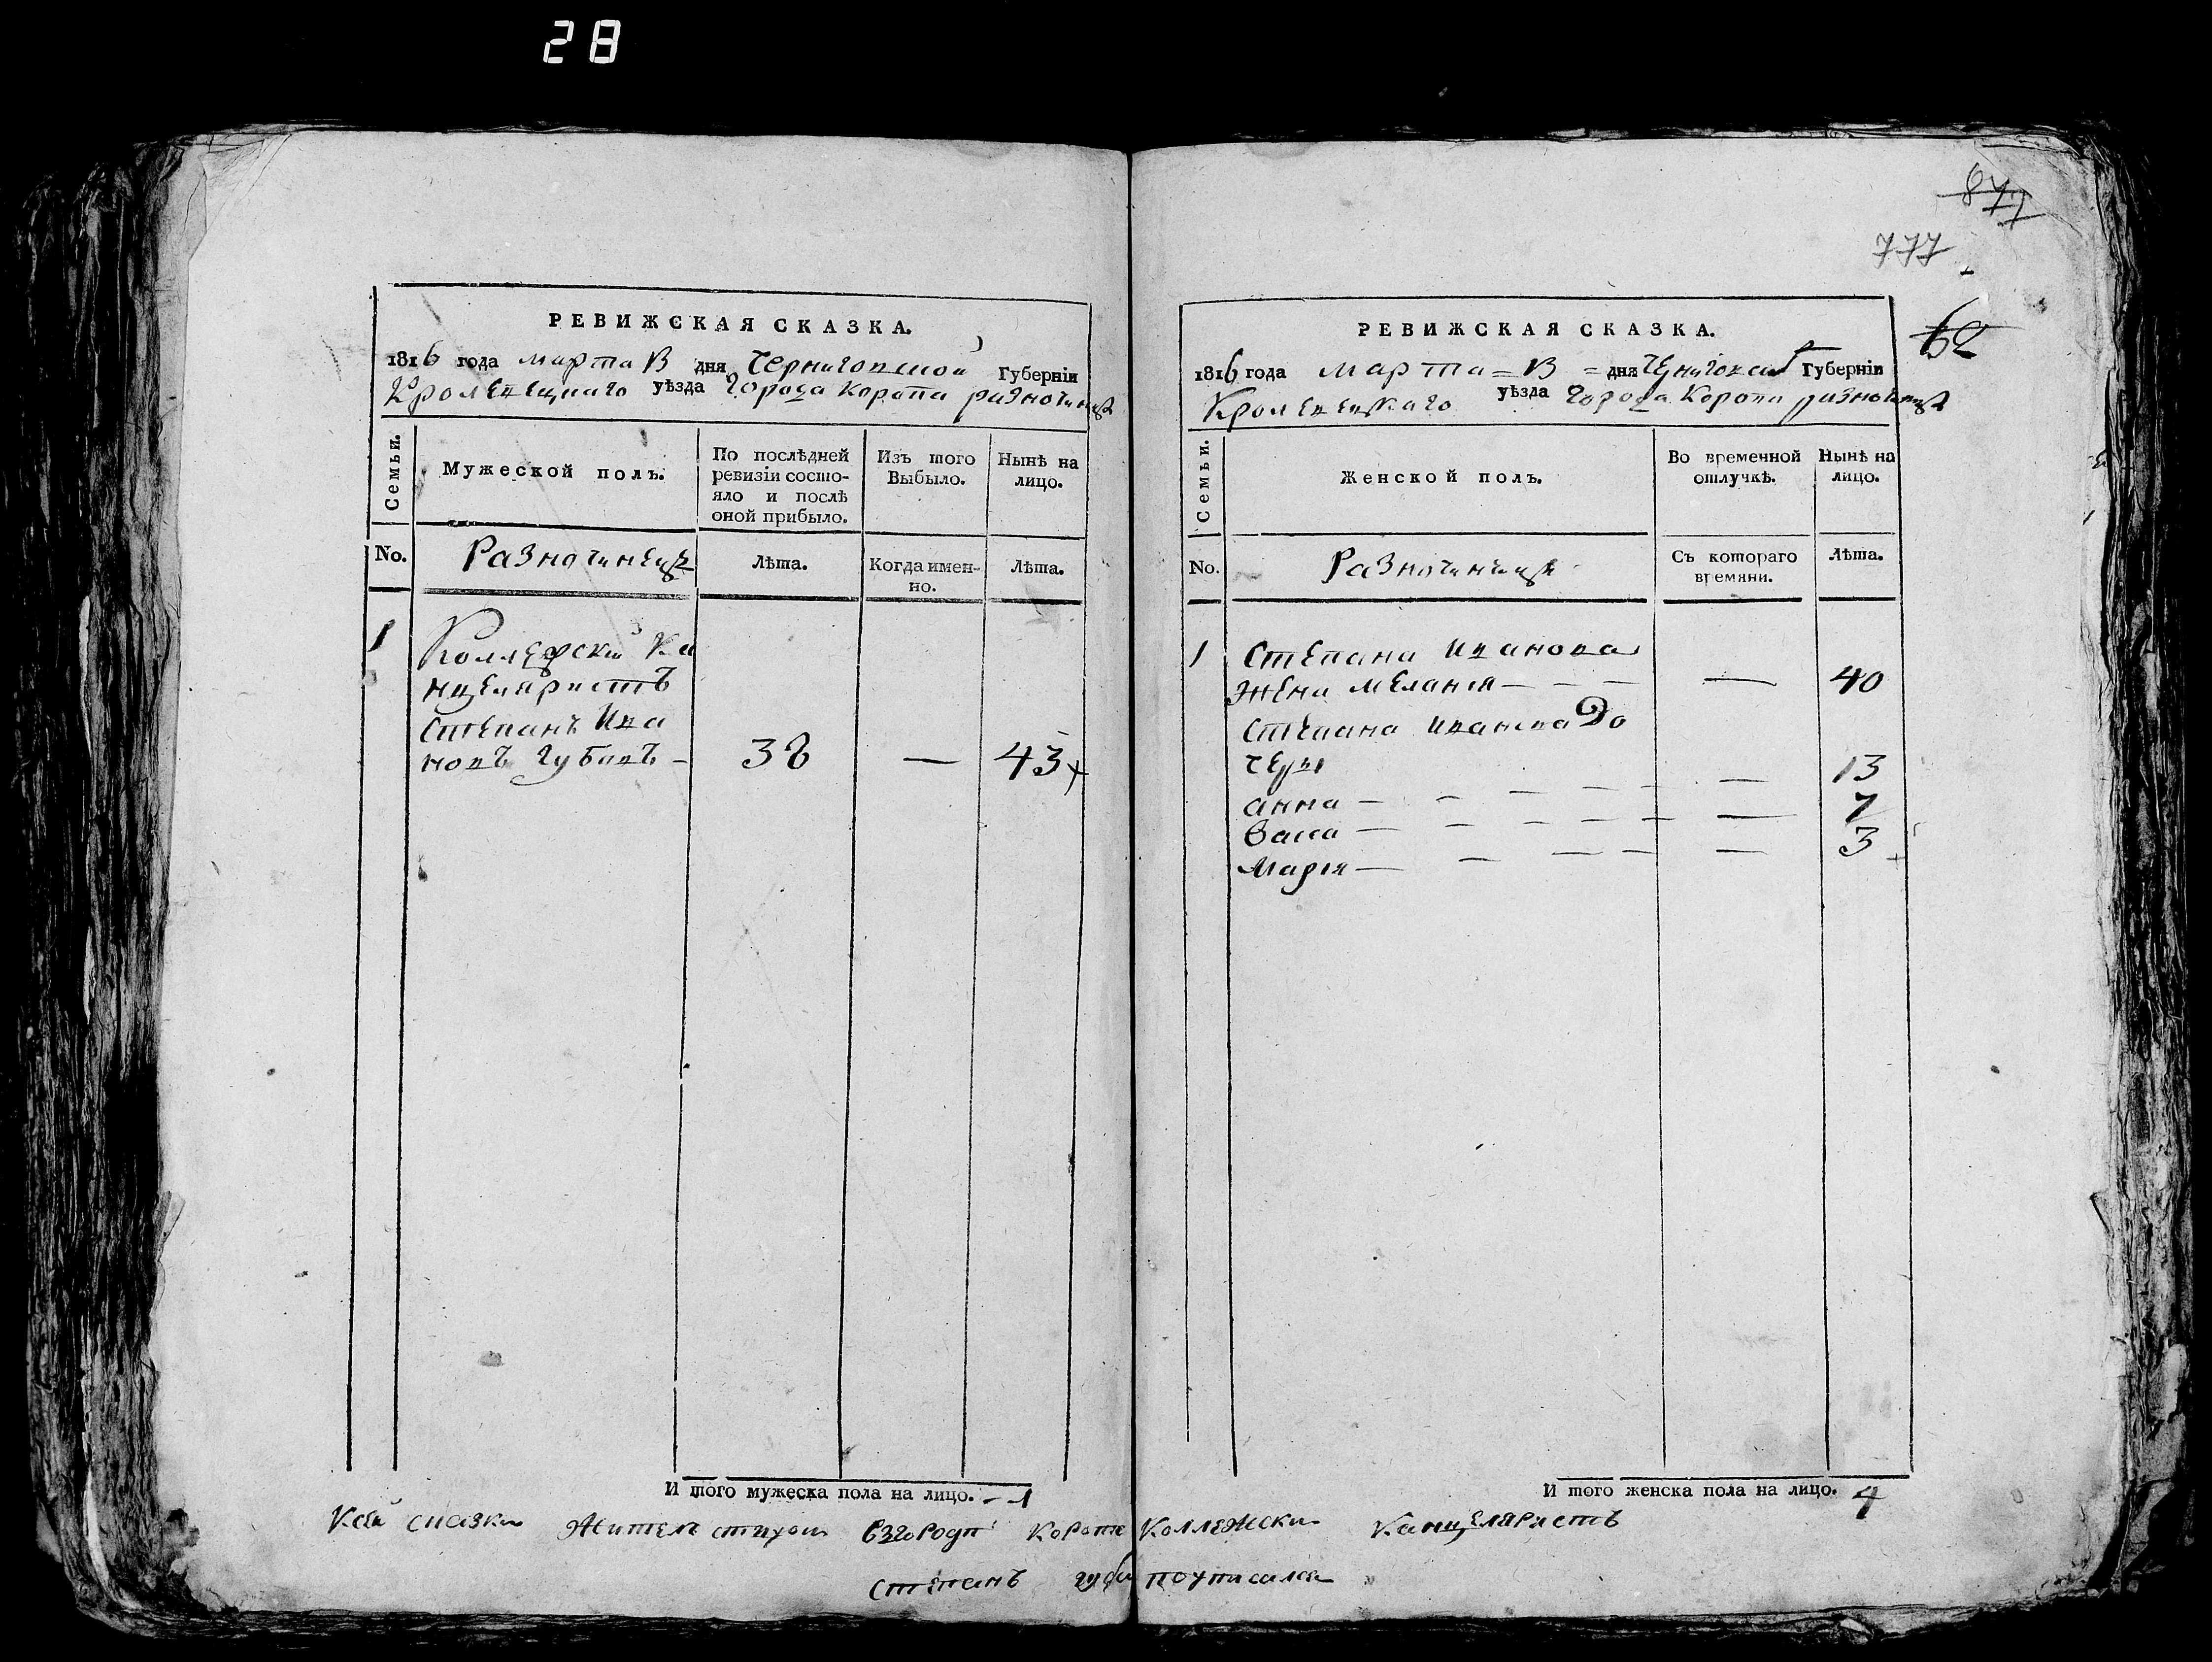 28
877
777
62
РЕВИЖСКАЯ СКАЗКА.
1816 года марта 13 дня Черниговской Губерніи
Кролевецкаго уѣзда города Коропа разночинца
Семьи.
Мужеской полъ.
По послѣдней ревизіи состояло и послѣ оной прибыло.
Изъ того Выбыло.
Нынѣ на лицо.
No.
Разночинецъ
Лѣта.
Когда именно.
Лѣта.
1 Коллежски Ка
нцеляристъ
Степанъ Ива
новъ Губинъ — — 43
И того мужеска пола на лицо. — 1
РЕВИЖСКАЯ СКАЗКА.
1816 года марта 13 дня Губерніи
Кролевецкаго уѣзда города Коропа разночинца
Семьи.
Женской полъ.
Во временной отлучкѣ.
Нынѣ на лицо.
No.
Съ котораго времяни.
Лѣта.
1 Степана Иванова
жена Меланія — — — — 40
Степана Иванова до
чери 13
анна — — — — — 7
васса — — — — — 3
Марія — — — — —
И того женска пола на лицо. 4
сказки Коллежски Канцеляристъ
Степанъ